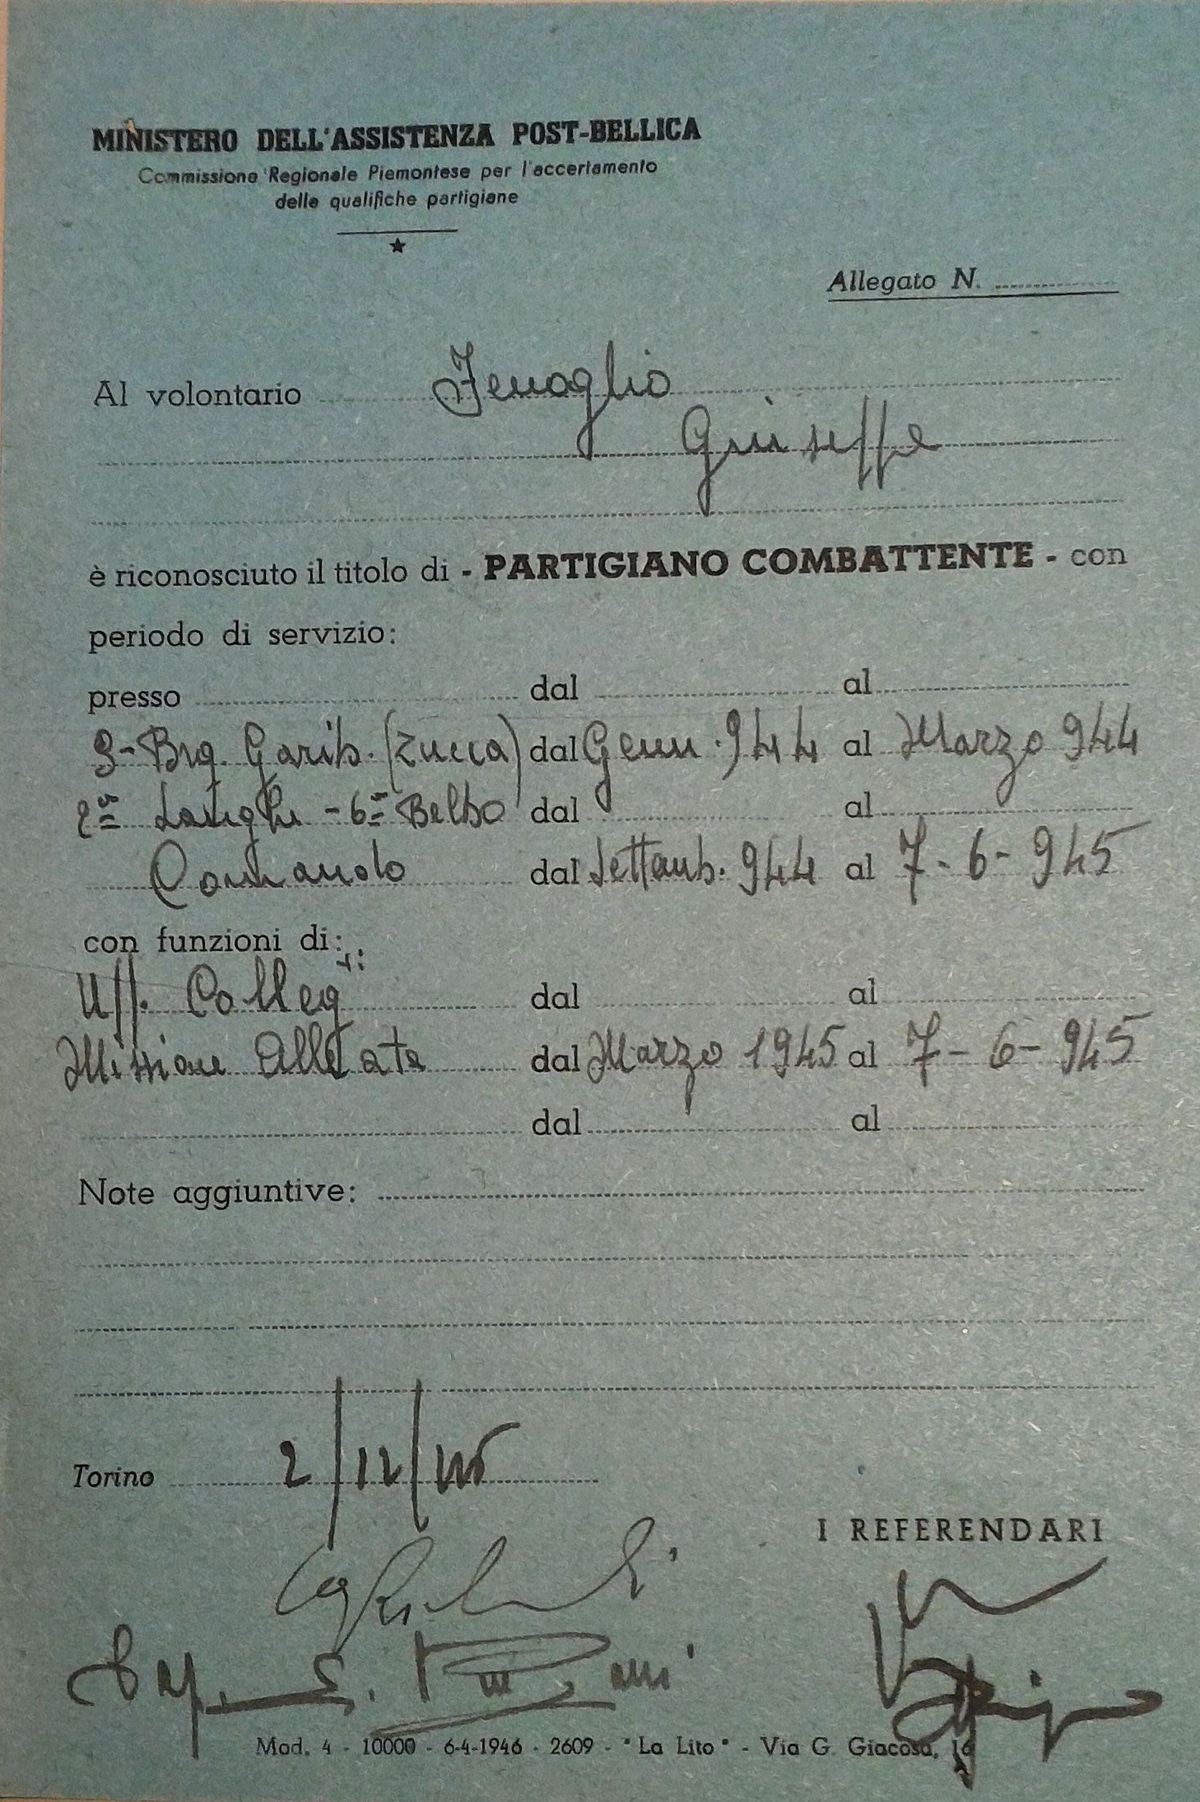 MINISTERO DELL'ASSISTENZA POST-BELLICA
Commissione Regionale Piemontese per l'accertamento
delle qualifiche partigiane
Allegato N.
Al volontario Fenoglio
Giuseppe
è riconosciuto il titolo di - PARTIGIANO COMBATTENTE - con
periodo di servizio:
presso dal al
Brg. Garib. (Zucca) dal Genn. 944 al Marzo 944
2ª Langhe - 6ª Belbo dal al
Comando dal Settemb. 944 al 7-6-945
con funzioni di:
Uff. Colleg.
dal al
Missione Alleata dal Marzo 1945 al 7-6-945
dal al
Note aggiuntive:
Torino 2/12/
I REFERENDARI
Mod. 4 - 10000 - 6-4-1946 - 2609 - "La Lito" - Via G. Giacosa, 16